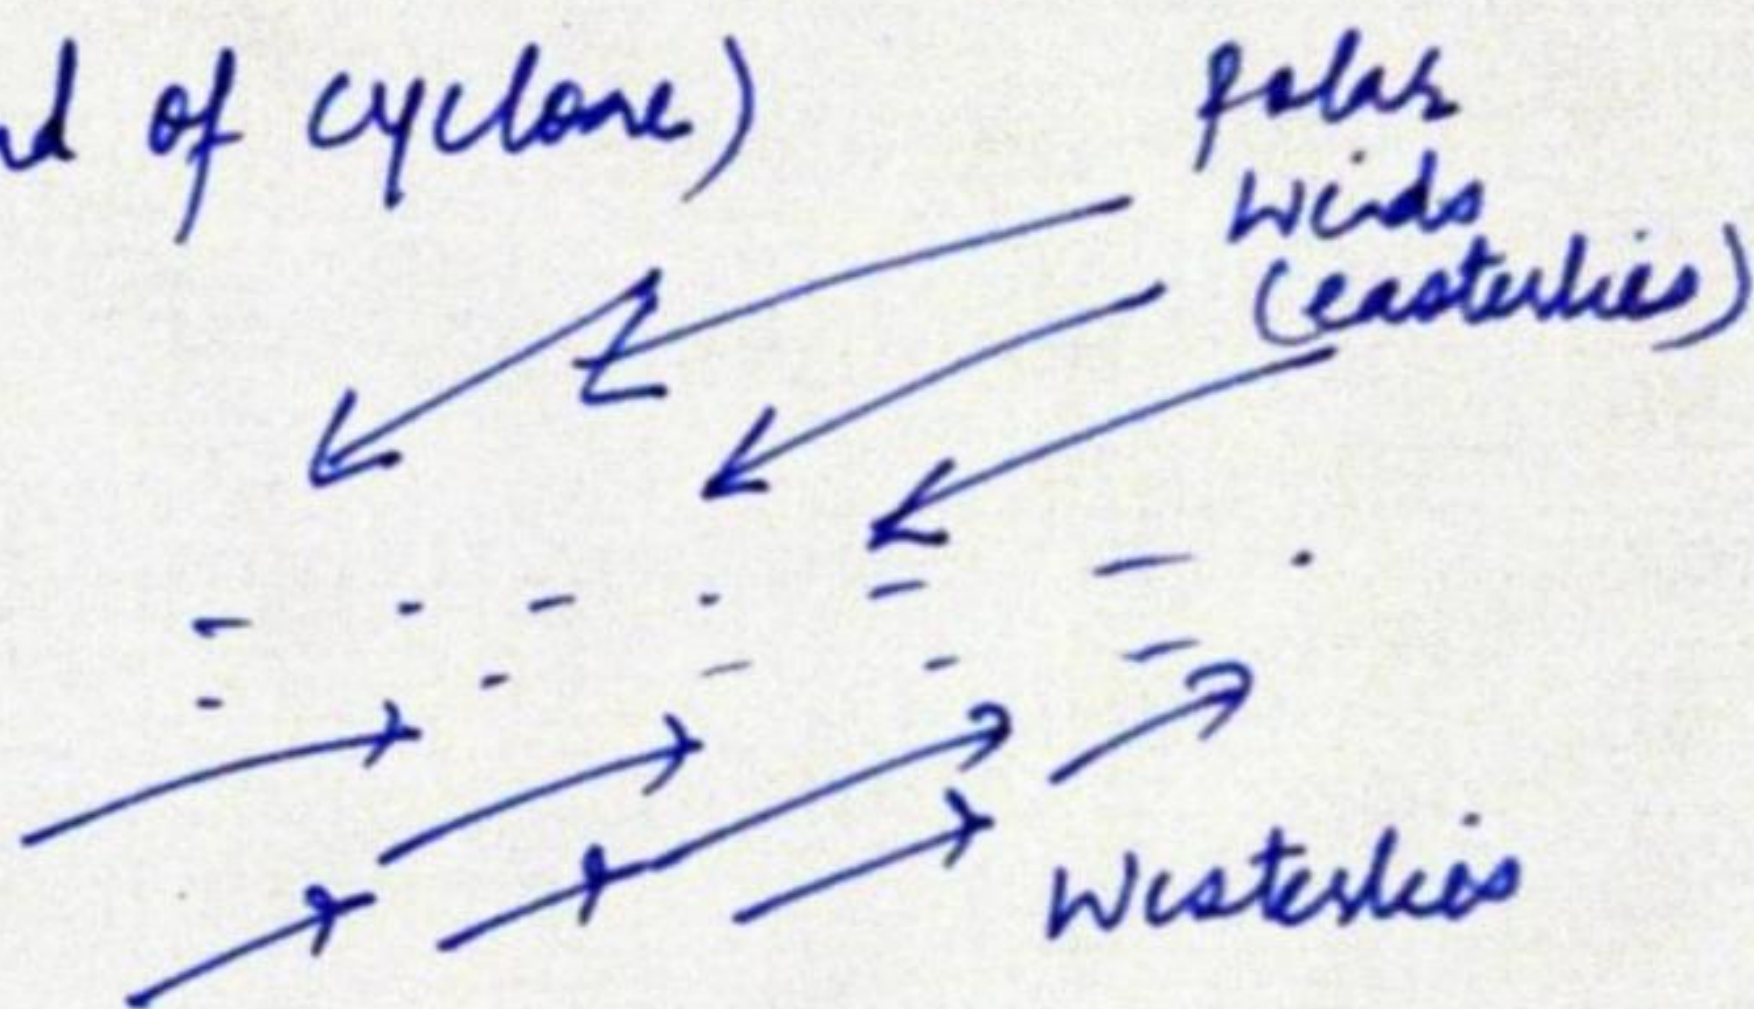 of cyclone)
Polar
Winds
(easterlies)
Westerlies